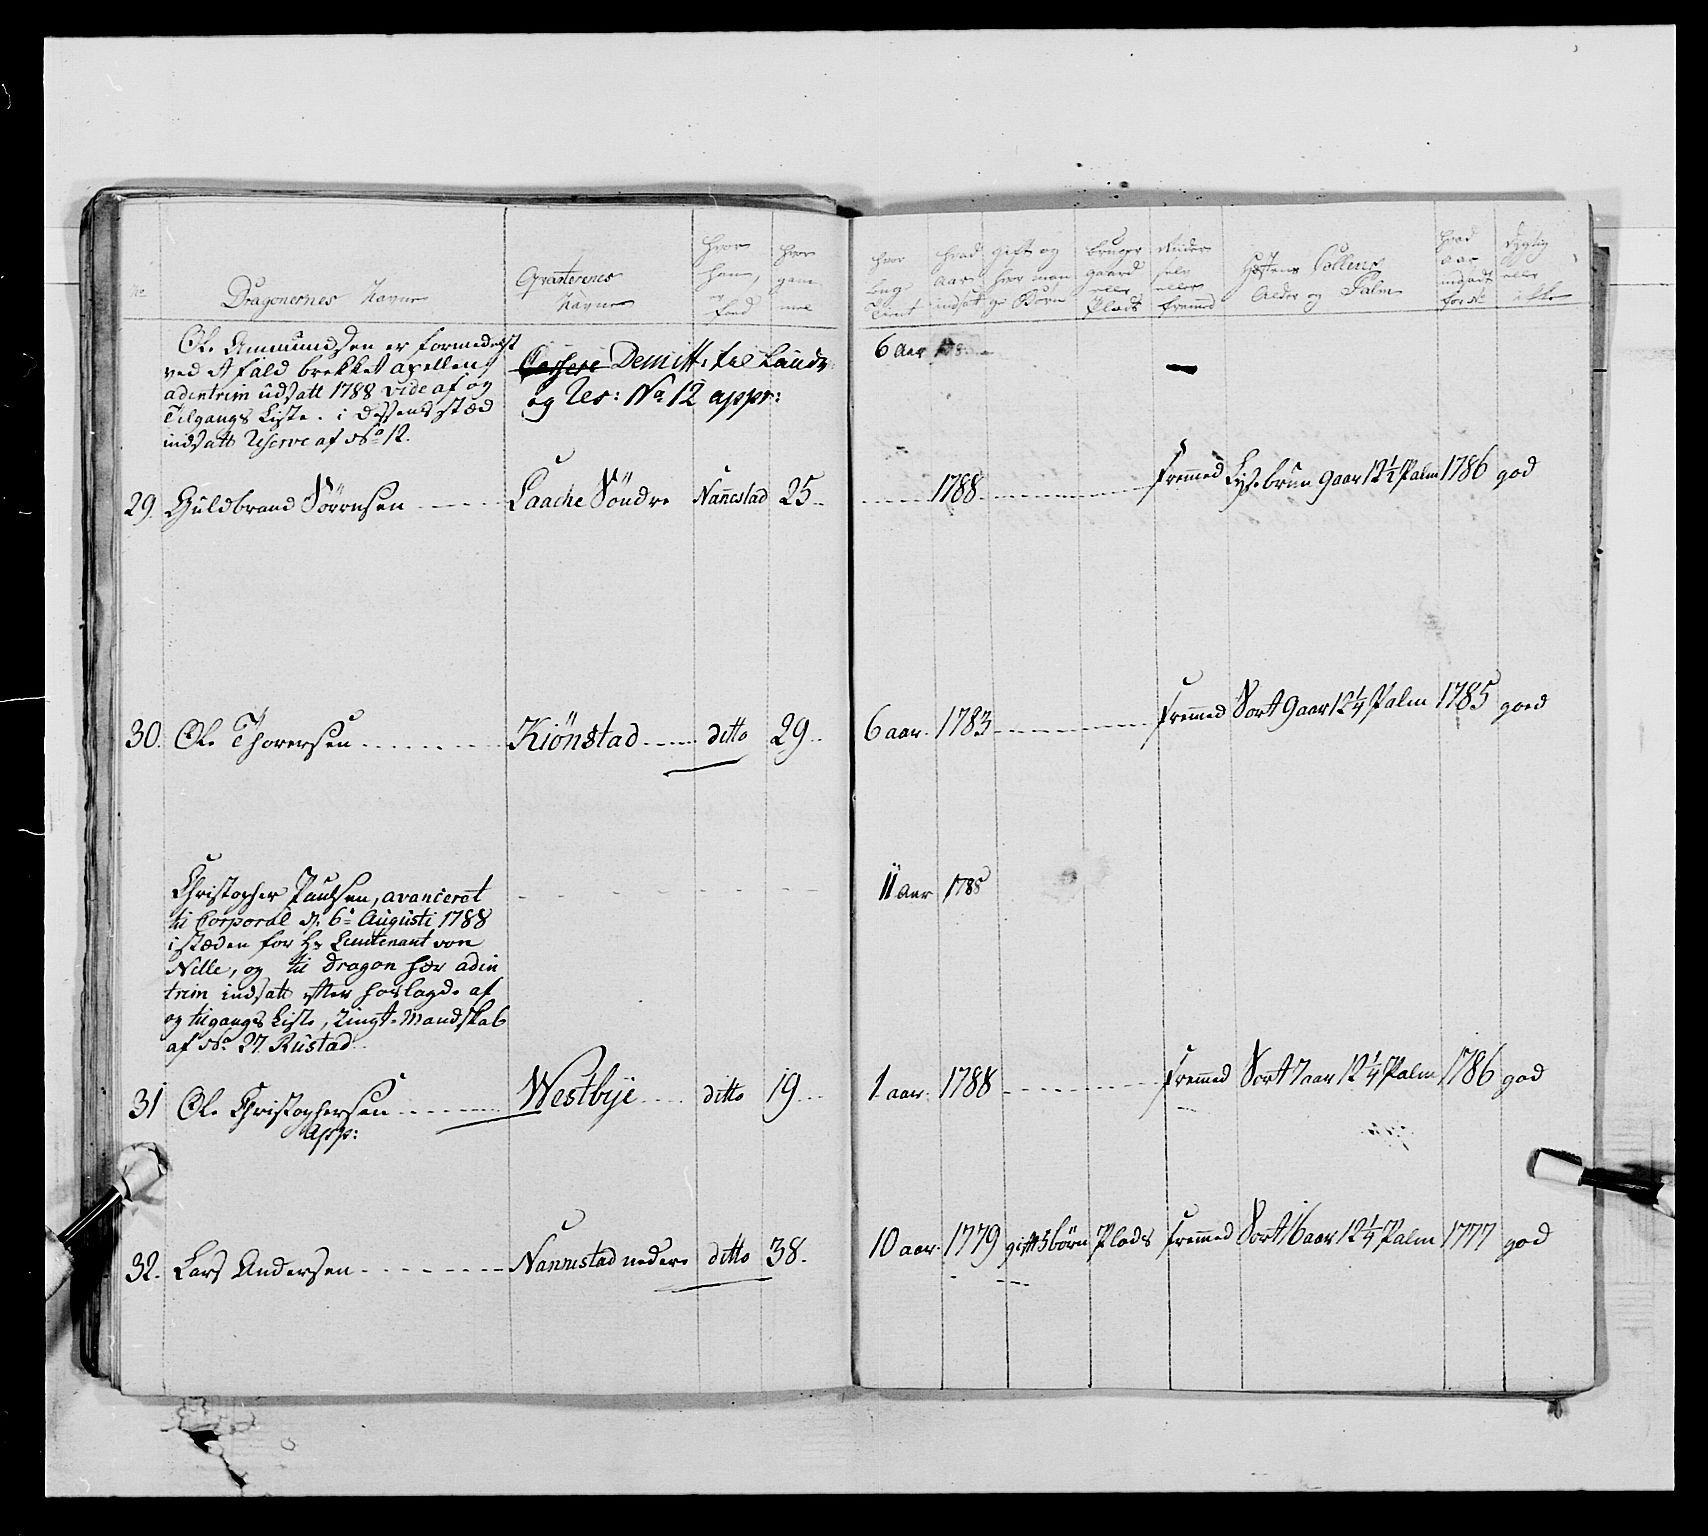 No
Dragonernes Navne
Qvarterenes
Navne
Hvor
han
er
født
hvor
gam
mel
hvor
lenge
tient
hvad
Aar
indsat
gift og
hvor man
ge Børn
bruger
gaard
eller
Plads
Rider
selv
eller
fremmed
Hestens Colleur
Alder og Palm
hvad
aar
indsadt
for No
dygtig
eller
ikke
Ole Ammundsen er formedelst
ved et fald brekket axellen,
adintrim udsatt 1788 vide af og
Tilgangs Liste. i dessens stæd
indsatt Reserve af No 12.
Cassere Demitt: til Landv:
og Res: No 12 appr:
6 Aar
29. Guldbrand Sörensen Laache Söndre Nanestad 25 1788 fremmed Lysebrun 9 aar 12 1/2 Palm 1786 god
30. Ole Thorersen Kiönstad ditto 29 6 aar 1783 fremmed Sort 9 aar 12 1/4 Palm 1785 goed
Christopher Paulsen, avanceret
til Corporal d. 6te Augusti 1788
i stæden for Hr Lieutenant von
Nelle, og til Dragon her adin
trim indsatt efter forslagde af
og tilgangs Liste, ringt Mandskab
af No 27 Rustad
11 Aar 1785
31 Ole Christophersen Westbye ditto 19 1 aar 1788 fremmed Sort 7 aar 12 1/4 Palm 1786 god
App:
32. Lars Andersen Nannestad nedere ditto 38. 10 aar 1779 gift 5 börn Plads fremmed Sort 16 aar 12 1/4 Palm 1777 god